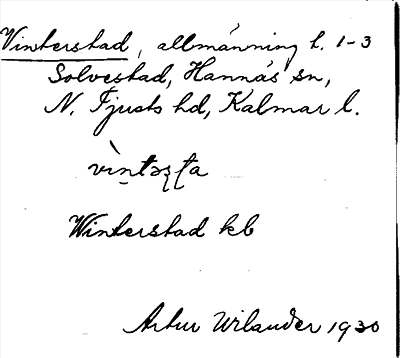 Vinterstad, allmänning t. 1-3
Solvestad, Hannäs sn,
N. Tjusts hd, Kalmar l.
vìntəʂʈa
Winterstad kb
Artur Wilander 1930